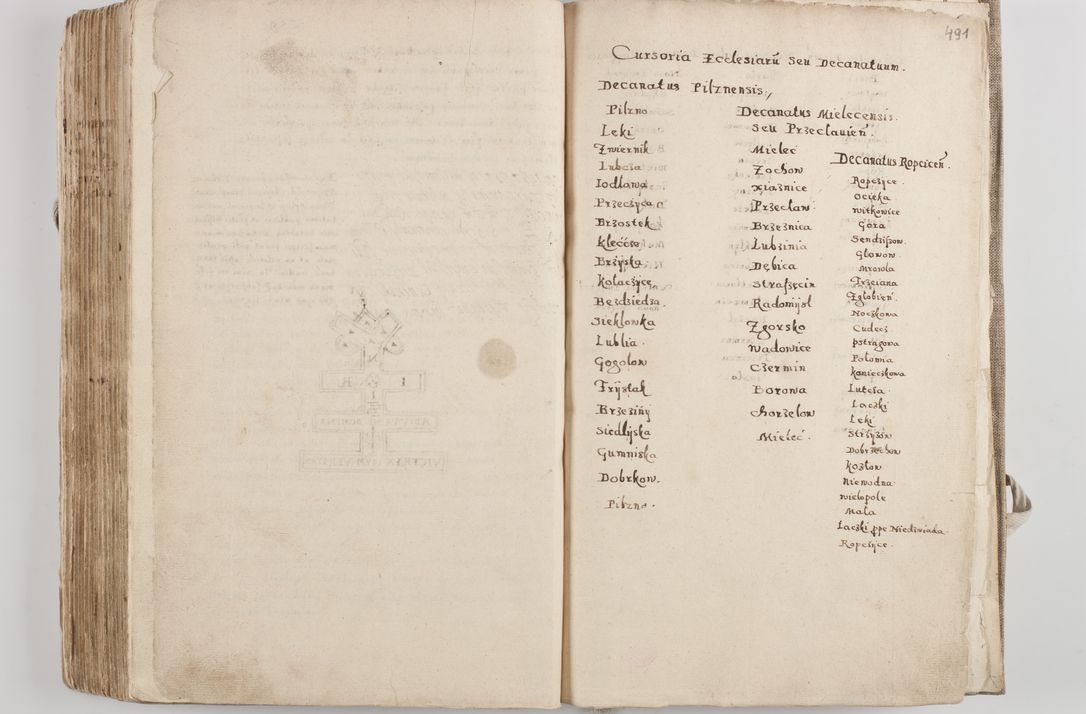 491
Cursoria Ecclesiarū seu Decanatuum.
Decanatus Pilznensis.,
Pilzno
Leki
Zwiernik
Lubcza
Jodlowa
Przeczyca
Brzostek
Klećće
Brzyska
Kołaczyce
Bezdziedza.
Sieklowka
Lublia.
Gogolow
Frijstak
Brzezinÿ
Siedlÿska
Gumniska
Dobrkow.
Pilzno.
Decanatus Mielecensis.
seu Przeclauień.
Mielec
Zochow
Xiaznice
Przeclaw.
Brzeznica
Lubzinia
Dębica
Strafzęcin
Radomijsl
Zgorsko
Wadowice
Czermin
Borowa
Chorzelow
Mielec.
Decanatus Ropciceñ.
Ropczÿce.
Ocieka
Witkowice
Góra
Sendzifzow.
Głowow.
Mrowla
Trzciana
Zgłobień.
Noczkowa
Cudecz
Pstrągowa
Połomia
Konieczkowa
Lutcza.
Laczki
Leki
Strzÿzow
Dobrzechow
Kozłow
Niewodna
Wielopole
Mala
Laczki ppe Niedzwiada
Ropczÿce.